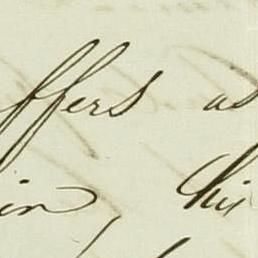 ffers as
in, his